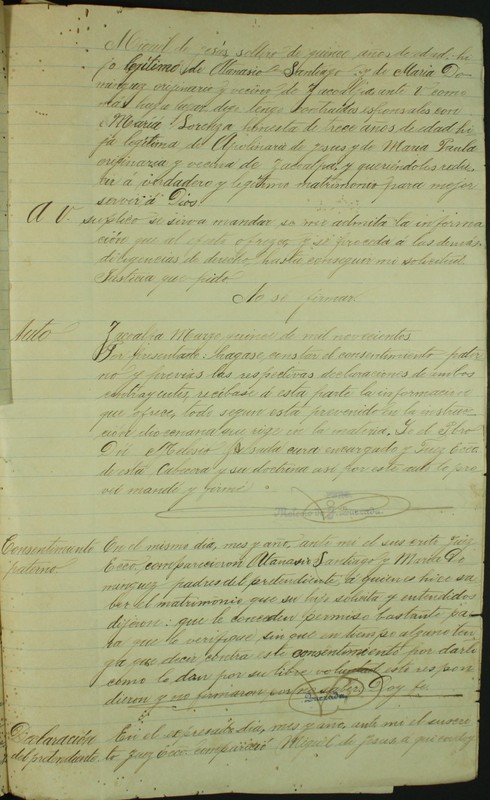 Miguel de Jesus soltero de quince años de edad hi-
jo legitimo de Atanasio Santiago y de Maria Do-
minguez originario y vecino de Zacoalpa ante V. como
mas haya lugar digo: tengo contraidos esponsales con
Maria Lorenza honesta de trece años de edad hi-
ja legitima de Apolinaria de Jesus y de Maria Paula
originaria y vecina de Zacoalpa, y queriendolos redu-
cir á verdadero y legitimo matrimonio para mejor
servir á Dios
A V. suplico se sirva mandar se me admita la informa-
ción que al efecto ofrezco, y se proceda á las demas
diligencias de derecho, hasta conseguir mi solicitud
Justicia que pido
No se firmar
Auto Zacoalpa Marzo de mil novecientos
Por presentado: hagase constar el consentimiento pater-
no y previas las respectivas declaraciones de ambos
contrayentes, recibase á esta parte la informacion
que ofrece, todo segun está prevenido en la instruc-
ción diocesana que rige en la materia. Yo el Pbro
Dn Melesio Quesada cura encargado y Juez Ecco.
de esta Cabecera y su doctrina asi por este auto lo pro-
veí mandé y firmé
Quezada
Consentimiento paterno. En el mismo dia, mes y año, ante mi el suscrito Juez
Ecco. comparecieron Atanasio Santiago y Maria Do-
minguez padres del pretendiente, á quienes hice sa-
ber el matrimonio que su hijo solicita y entendidos
dijeron: que le conceden permiso bastante pa-
ra que lo verifique, sin que en tiempo alguno ten-
ga que decir contra este consentimiento por darlo
como lo dan por su libre voluntad esto respon-
dieron y no firmaron por no saber. Doy fe.
Quezada
Declaración del pretendiente En el expresado dia, mes y año, ante mi el suscri-
to Juez Ecco. compareció Miguel de Jesus, a quien doy